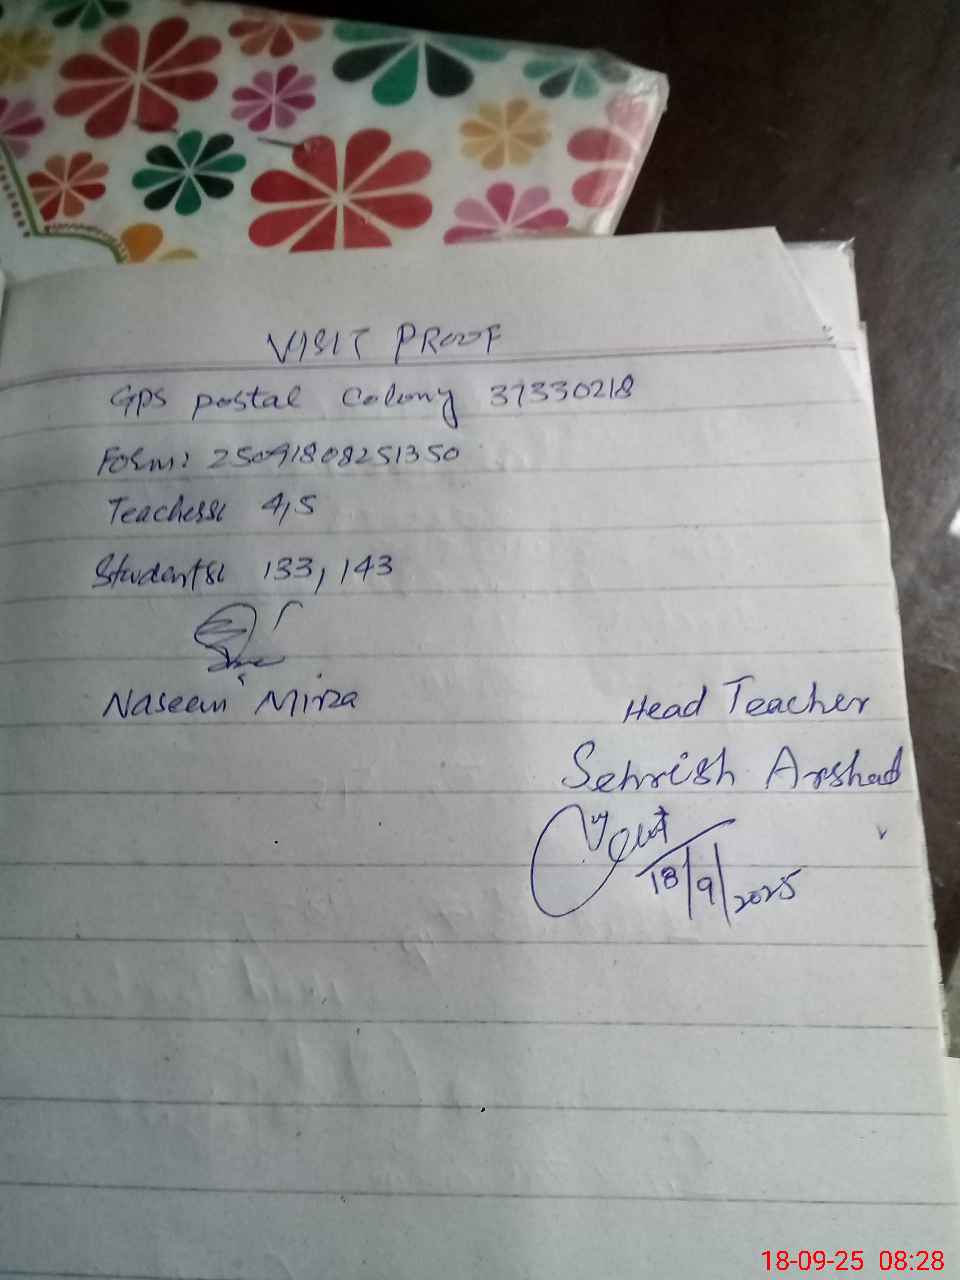 VISIT PROOF
GPS postal Colony 37330218
Form: 25091808251350
Teachers: 4,5
Students: 133, 143
Naseem Mirza
Head Teacher
Sehrish Arshad
18/9/2025
18-09-25 08:28